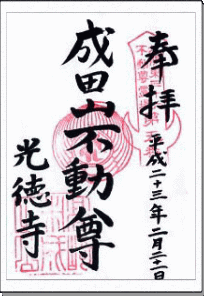 奉拝
平成二十三年二月二十一日
成田山不動尊
光徳寺